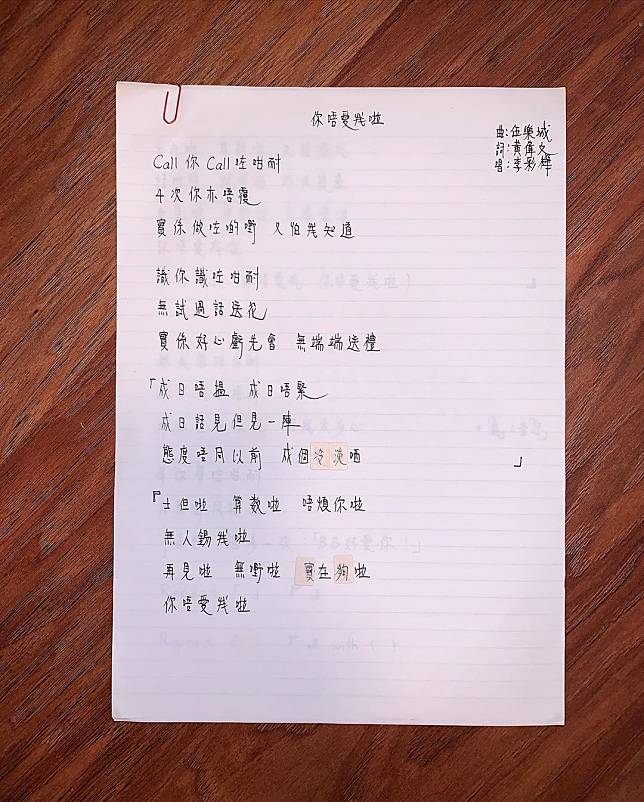 你唔愛我啦
曲:伍樂城
詞:黃偉文
唱:李彩樺
Call 你 Call 咗咁耐
4 次你亦唔覆
實係做咗啲嘢 又怕我知道
識你識咗咁耐
無試過話送花
實係好心虧先會 無端端送禮
「成日唔搵 成日唔緊
成日話見但見一陣
態度唔同以前 成個冷淡晒」
『士但啦 算数啦 唔煩你啦
無人錫我啦
再見啦 無嘢啦 實在夠啦
你唔愛我啦